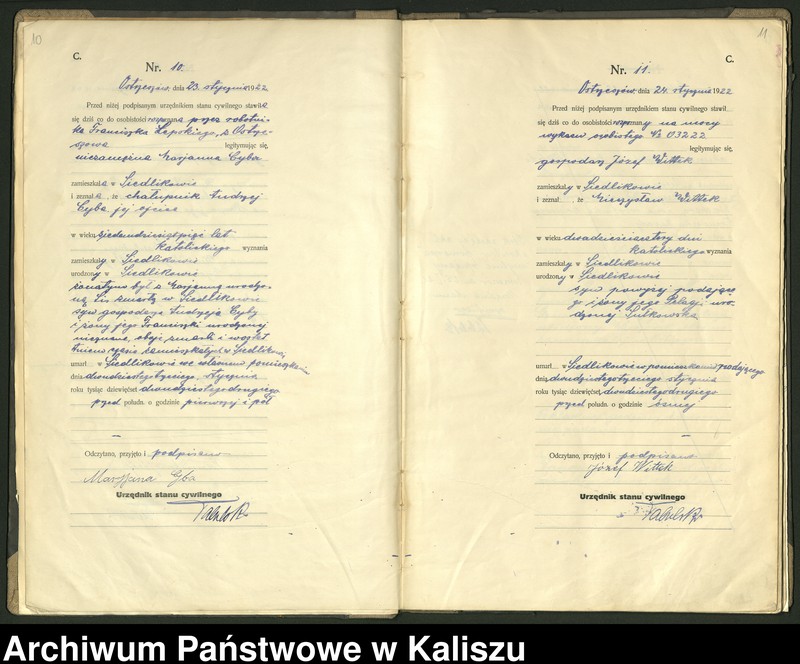 10
C.
Nr. 10.
Ostrzeszów, dnia 23. stycznia 1922
Przed niżej podpisanym urzędnikiem stanu cywilnego stawiła
się dziś co do osobistości rozpoznana przez robotni-
ka Franciszka Łapskiego, z Ostrze-
szowa legitymując się,
niezamężna Marjanna Cyba
zamieszkała w Siedlikowie
i zeznała, że chałupnik Andrzej
Cyba jej ojciec
w wieku siedemdziesiątpięć lat
katolickiego wyznania
zamieszkały w Siedlikowie
urodzony w Siedlikowie
żonatym był z Marjanną urodzo-
ną zmarłą w Siedlikowie
syn gospodarza Andrzeja Cyby
i żony jego Franciszki urodzonej
nieznane, oboje zmarli i
zamieszkałych w Siedlikowie
umarł w Siedlikowie we własnem pomieszkaniu
dnia dwudziestegotrzeciego stycznia
roku tysiąc dziewięćset dwudziestegodrugiego
przed połudn. o godzinie pierwszej i pół
Odczytano, przyjęto i podpisano
Marjjana Cyba
Urzędnik stanu cywilnego
11
C.
Nr. 11.
Ostrzeszów, dnia 24. stycznia 1922
Przed niżej podpisanym urzędnikiem stanu cywilnego stawił
się dziś co do osobistości rozpoznany na mocy
wykazu osobistego № 03222
legitymując się,
gospodarz Józef Wittek
zamieszkały w Siedlikowie
i zeznał, że Mieczysław Wittek
w wieku dwadzieściacztery dni
katolickiego wyznania
zamieszkały w Siedlikowie
urodzony w Siedlikowie
syn powyżej podające-
go i żony jego Pelagji uro-
dzonej Sutkowska
umarł w Siedlikowie w pomieszkaniu podającego
dnia dwudziestegotrzeciego stycznia
roku tysiąc dziewięćset dwudziestegodrugiego
przed połudn. o godzinie ósmej
Odczytano, przyjęto i podpisano
Józef Wittek
Urzędnik stanu cywilnego
Archiwum Państwowe w Kaliszu